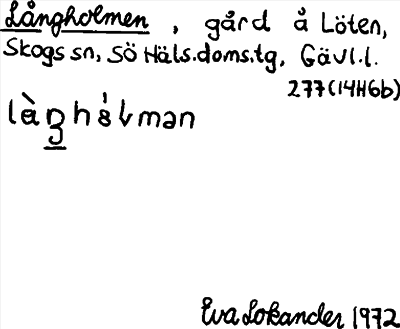 Långholmen, gård å Löten,
Skogs sn, SÖ Häls.doms.tg, Gävl.l.
277(14H6b)
Eva Lokander 1972